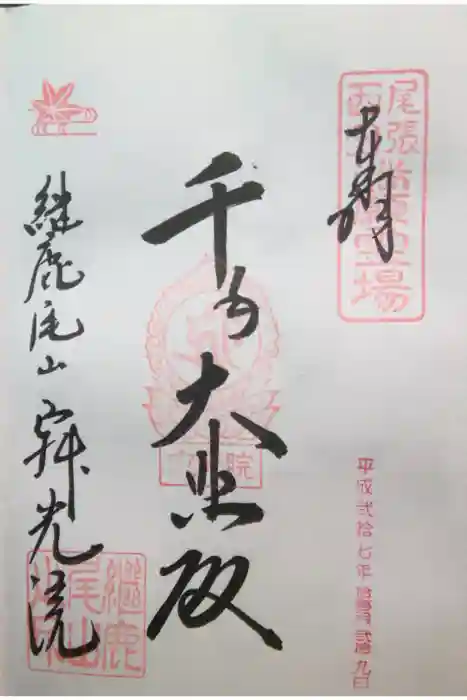 奉拝
尾張西国観音霊場
平成弐拾七年
弐拾九日
千手
大悲殿
院
継鹿尾山
寂光院
継鹿尾山